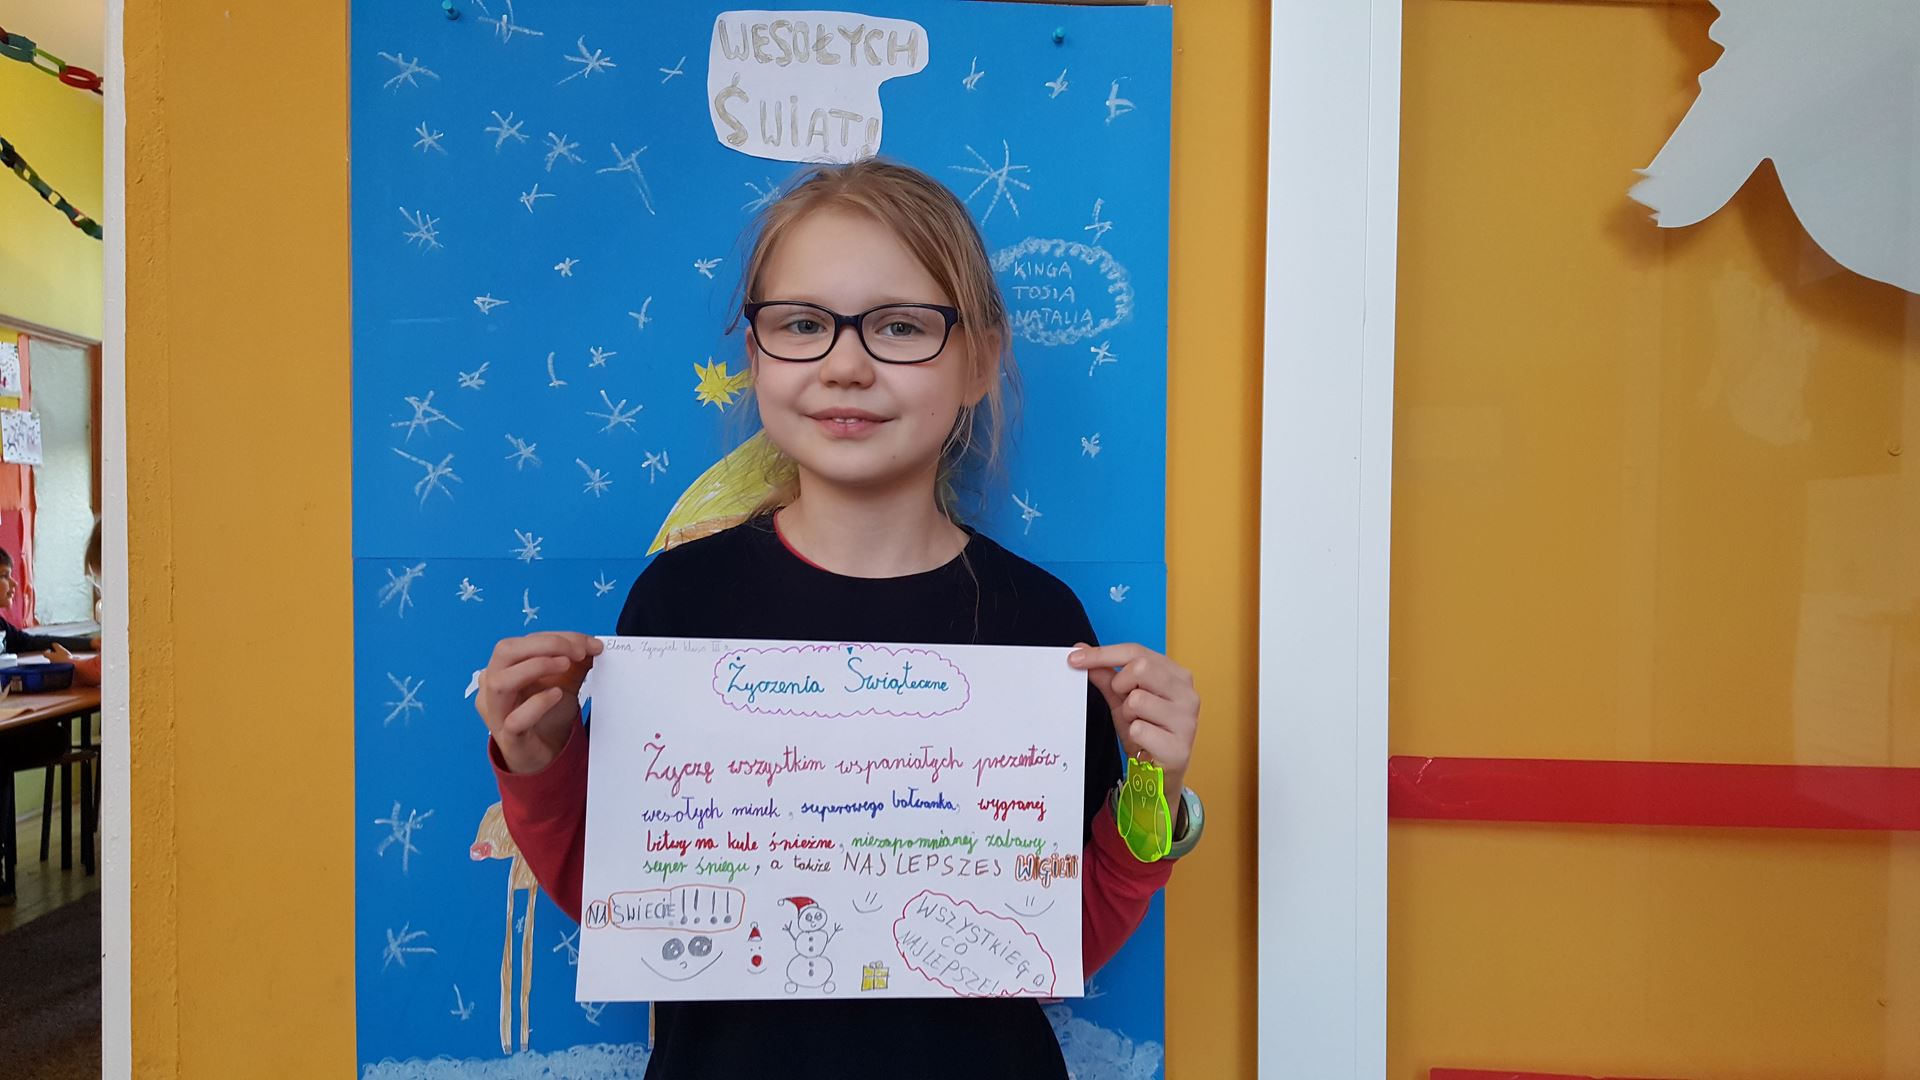 WESOŁYCH
ŚWIĄT!
KINGA
TOSIA
NATALIA
klasa III
Życzenia Świąteczne
Życzę wszystkim wspaniałych prezentów,
wesołych minek, superowego bałwanka, wygranej
bitwy na kule śnieżne, niezapomnianej zabawy,
super śniegu, a także NAJLEPSZEJ WIGILII
NA ŚWIECIE!!!!
WSZYSTKIEGO
CO
NAJLEPSZE!